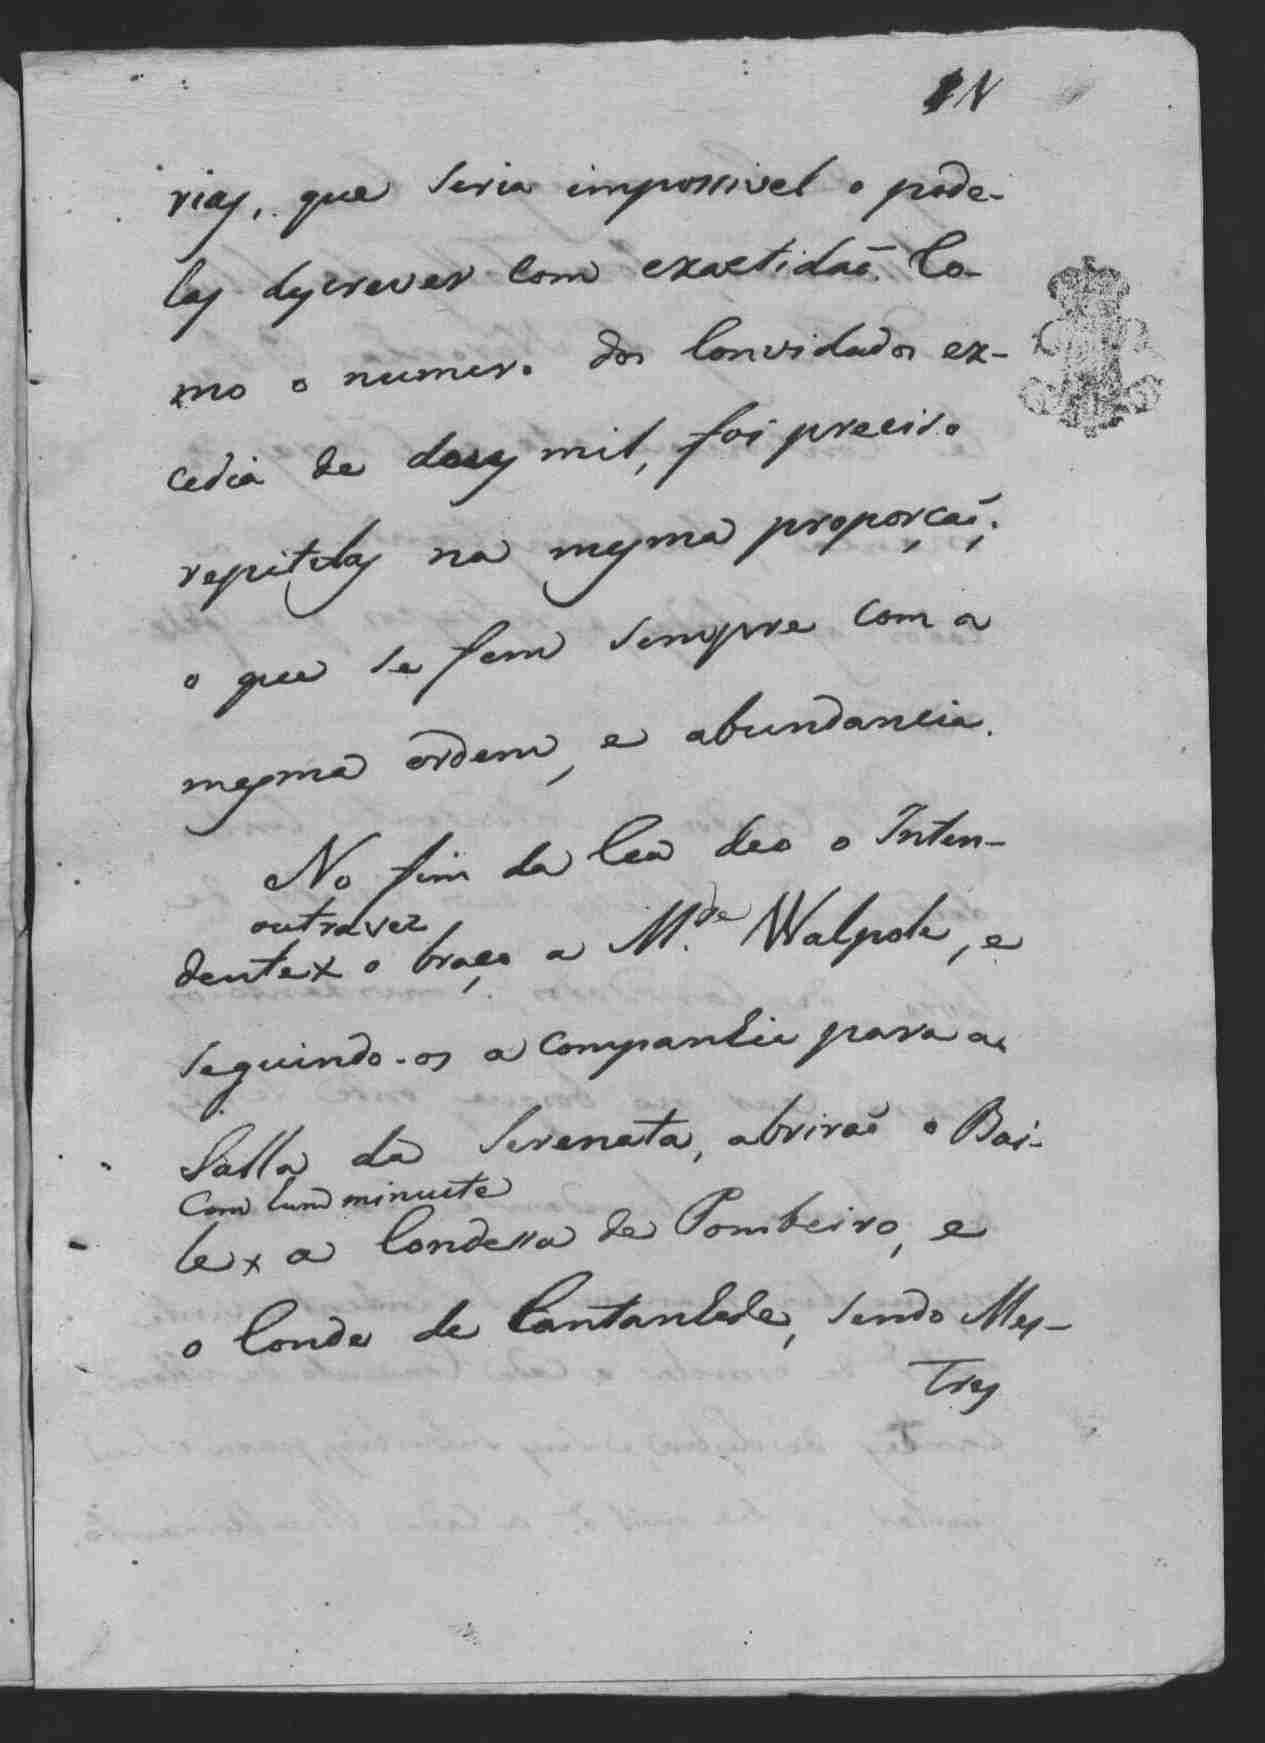 rias, que seria impossivel o pode-
las descrever com exactidaõ. Co-
mo o numero dos Convidados ex-
cedia de dous mil, foi preciso
repitilas na mesma proporçaõ;
o que se fez sempre com a
mesma ordem, e abundancia.
No fim da Cea deo o Inten-
outra vez
dente x o braço a M.de Walpole, e
seguindo-os a companhia para a
Salla da Serenata, abriraõ o Bai-
com hum minuete
le x a Condessa de Pombeiro, e
o Conde de Cantanhede, sendo Mes-
tres